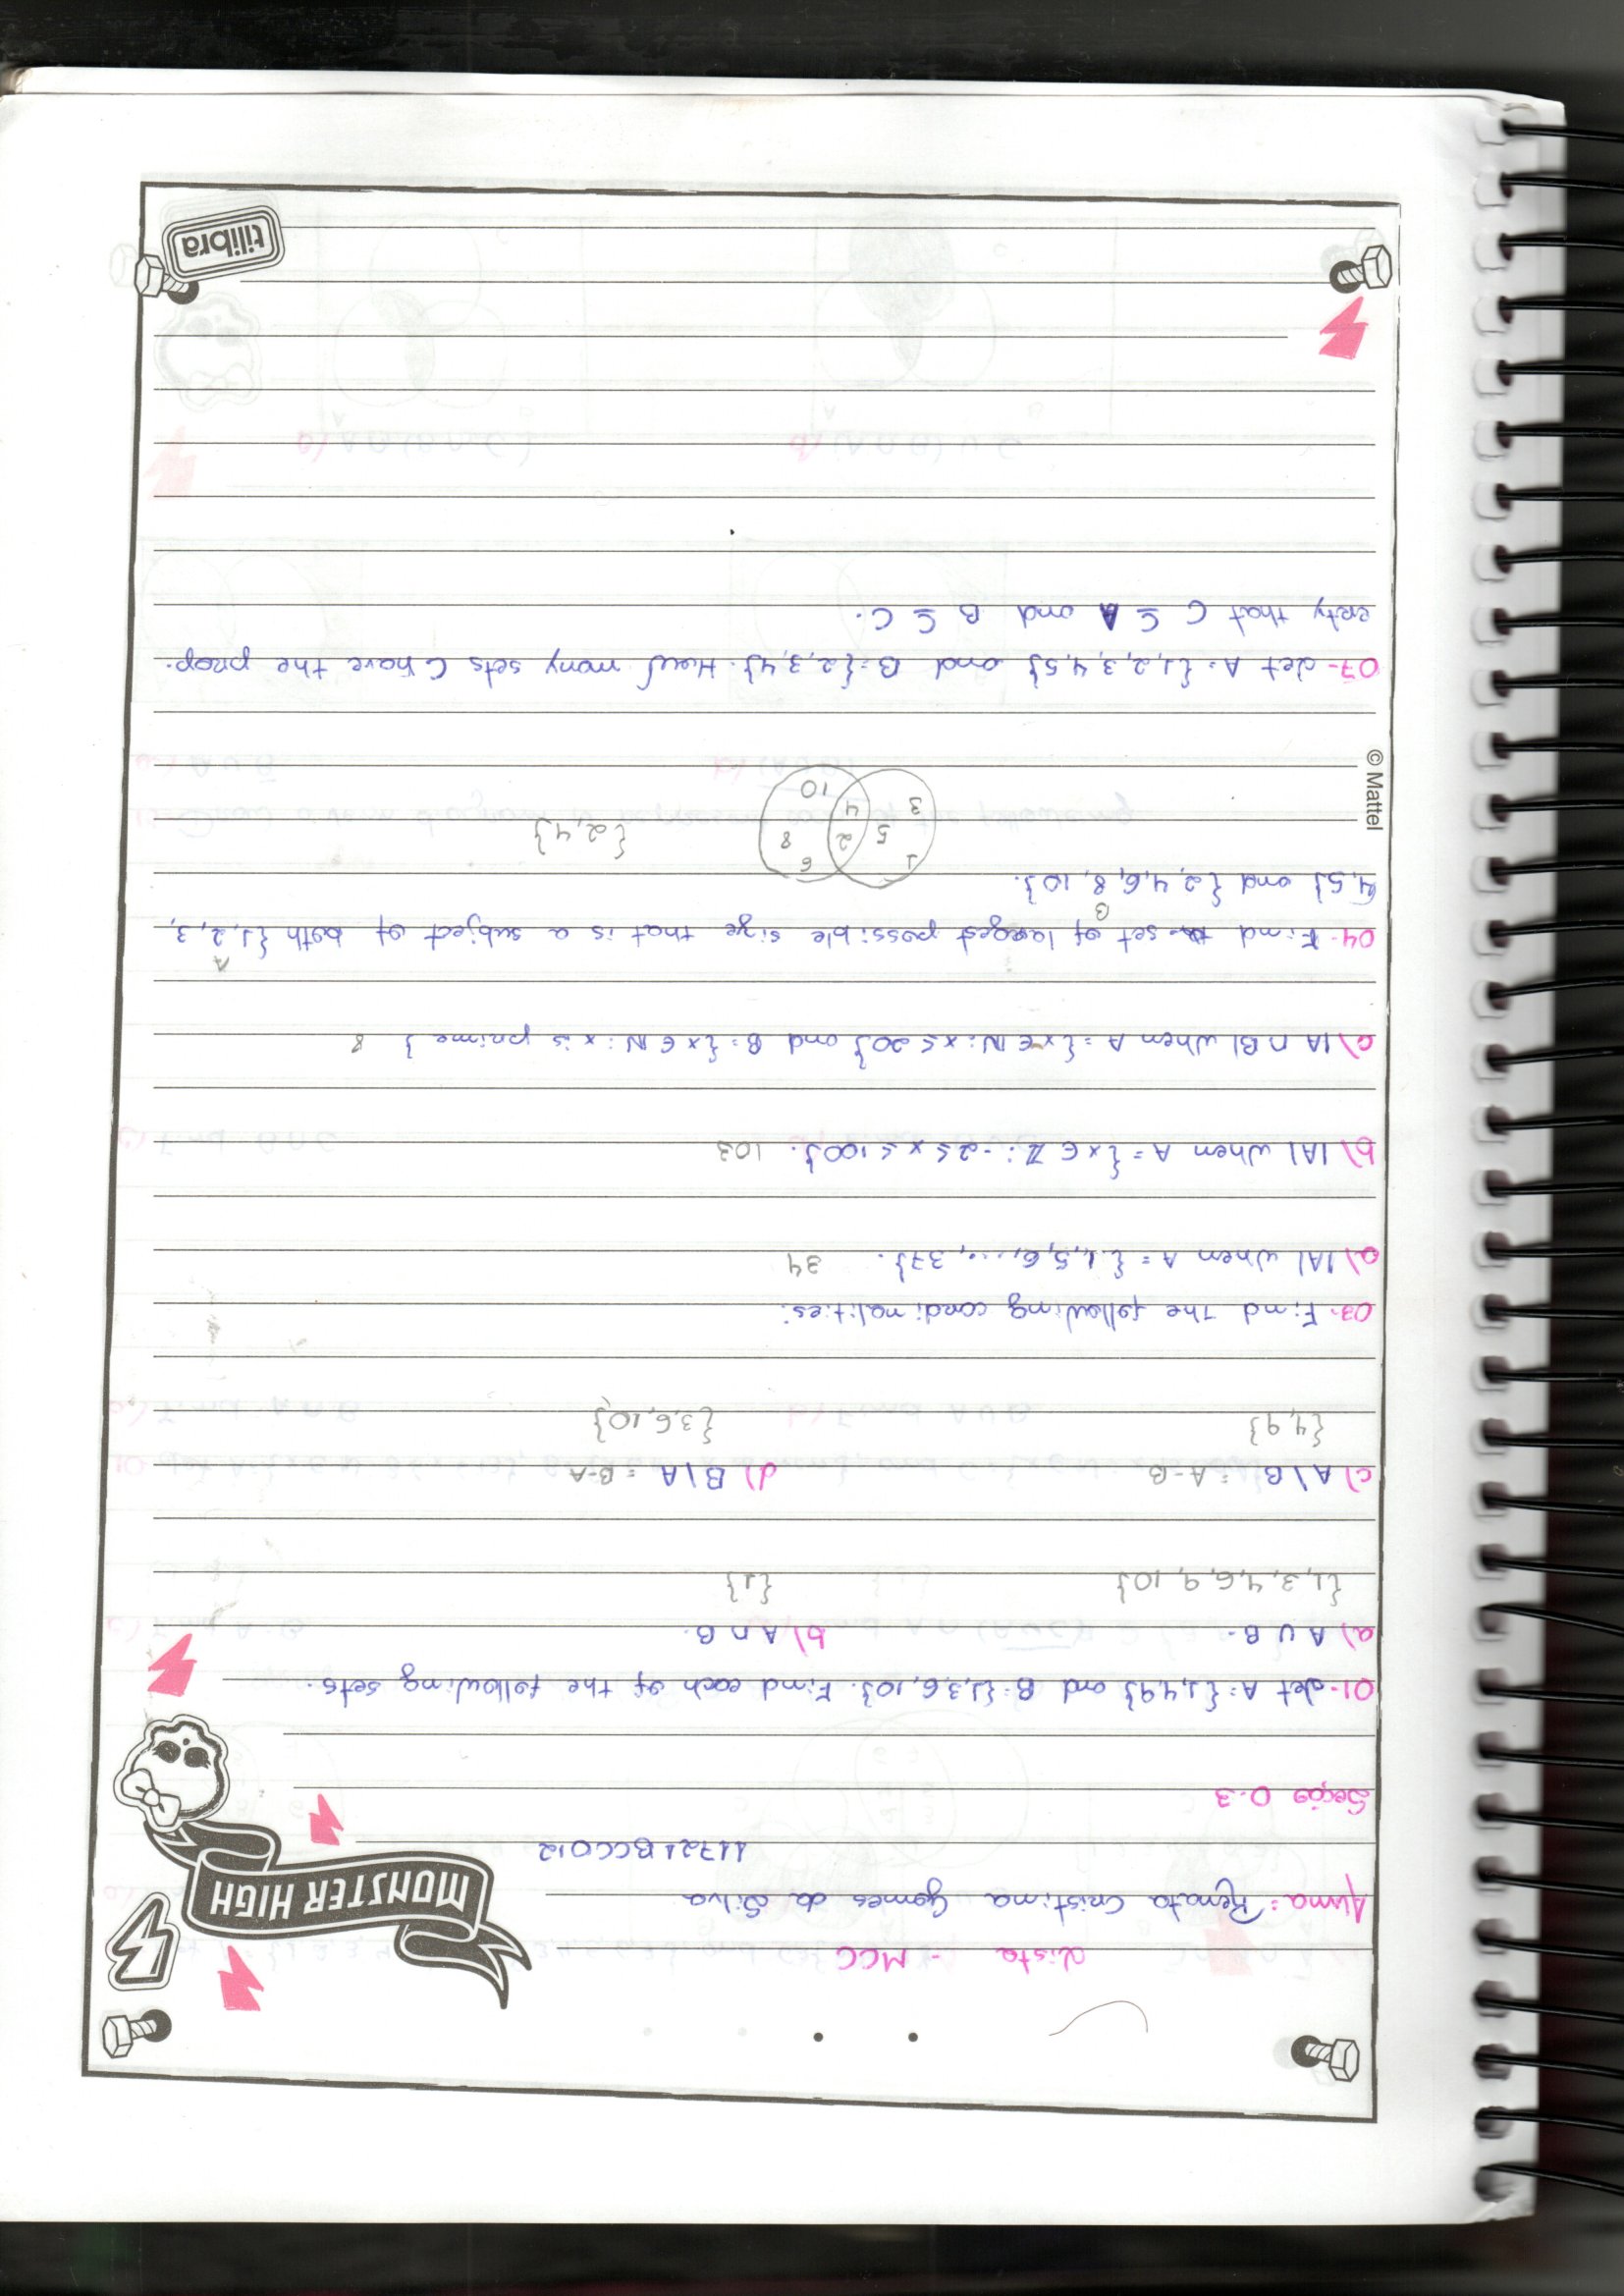 Lista - MCC
Aluna: Renata Cristina Gomes da Silva
11721BCC012
MONSTER HIGH
Seção 0.3
01- Let A = {1,4,9} and B = {1,3,6,10}. Find each of the following sets.
a) A ∪ B. b) A ∩ B.
{1,3,4,6,9,10} {1}
c) A \ B = A-B d) B \ A = B-A
{4,9} {3,6,10}
03- Find the following cardinalities:
a) |A| when A = {4,5,6,...,37}. 34
b) |A| when A = {x ∈ Z : -2 ≤ x ≤ 100}. 103
c) |A ∩ B| when A = {x ∈ N : x ≤ 20} and B = {x ∈ N : x is prime} 8
A
04- Find set of largest possible size that is a subject of both {1,2,3,
B
4,5} and {2,4,6,8,10}.
1 6
5 2 8 {2,4}
3 4 10
© Mattel
07- Let A = {1,2,3,4,5} and B = {2,3,4}. How many sets C have the prop-
erty that C ⊆ A and B ⊆ C.
tilibra